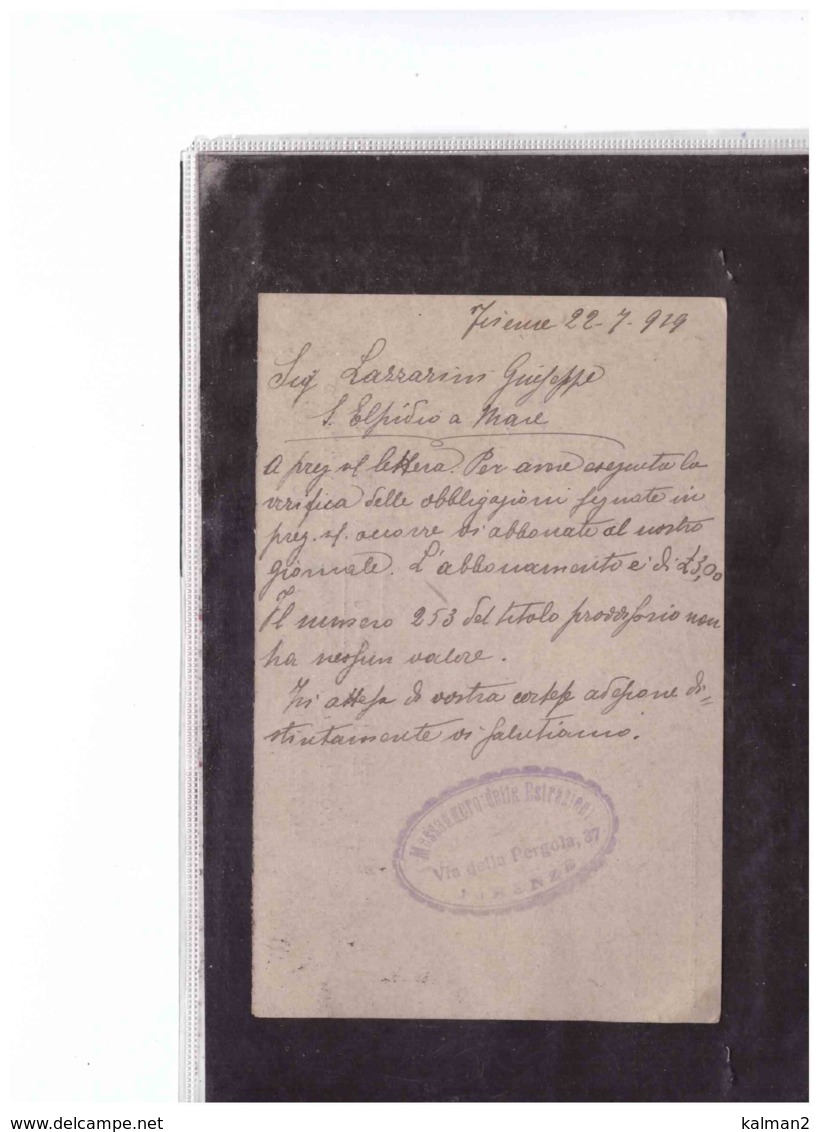 Firenze 22-7-919
Sig Lazzarini Giuseppe
S. Elpidio a Mare
A preg vs lettera. Per avere eseguita la
verifica delle obbligazioni segnate in
preg. vs. occorre vi abbonate al nostro
giornale. L'abbonamento è di £ 3,00
Il numero 253 del titolo provvisorio non
ha nessun valore.
In attesa di vostra cortese adesione di=
stintamente vi salutiamo.
Messaggero delle Estrazioni
Via della Pergola, 37
FIRENZE
delcampe.net
kalman2